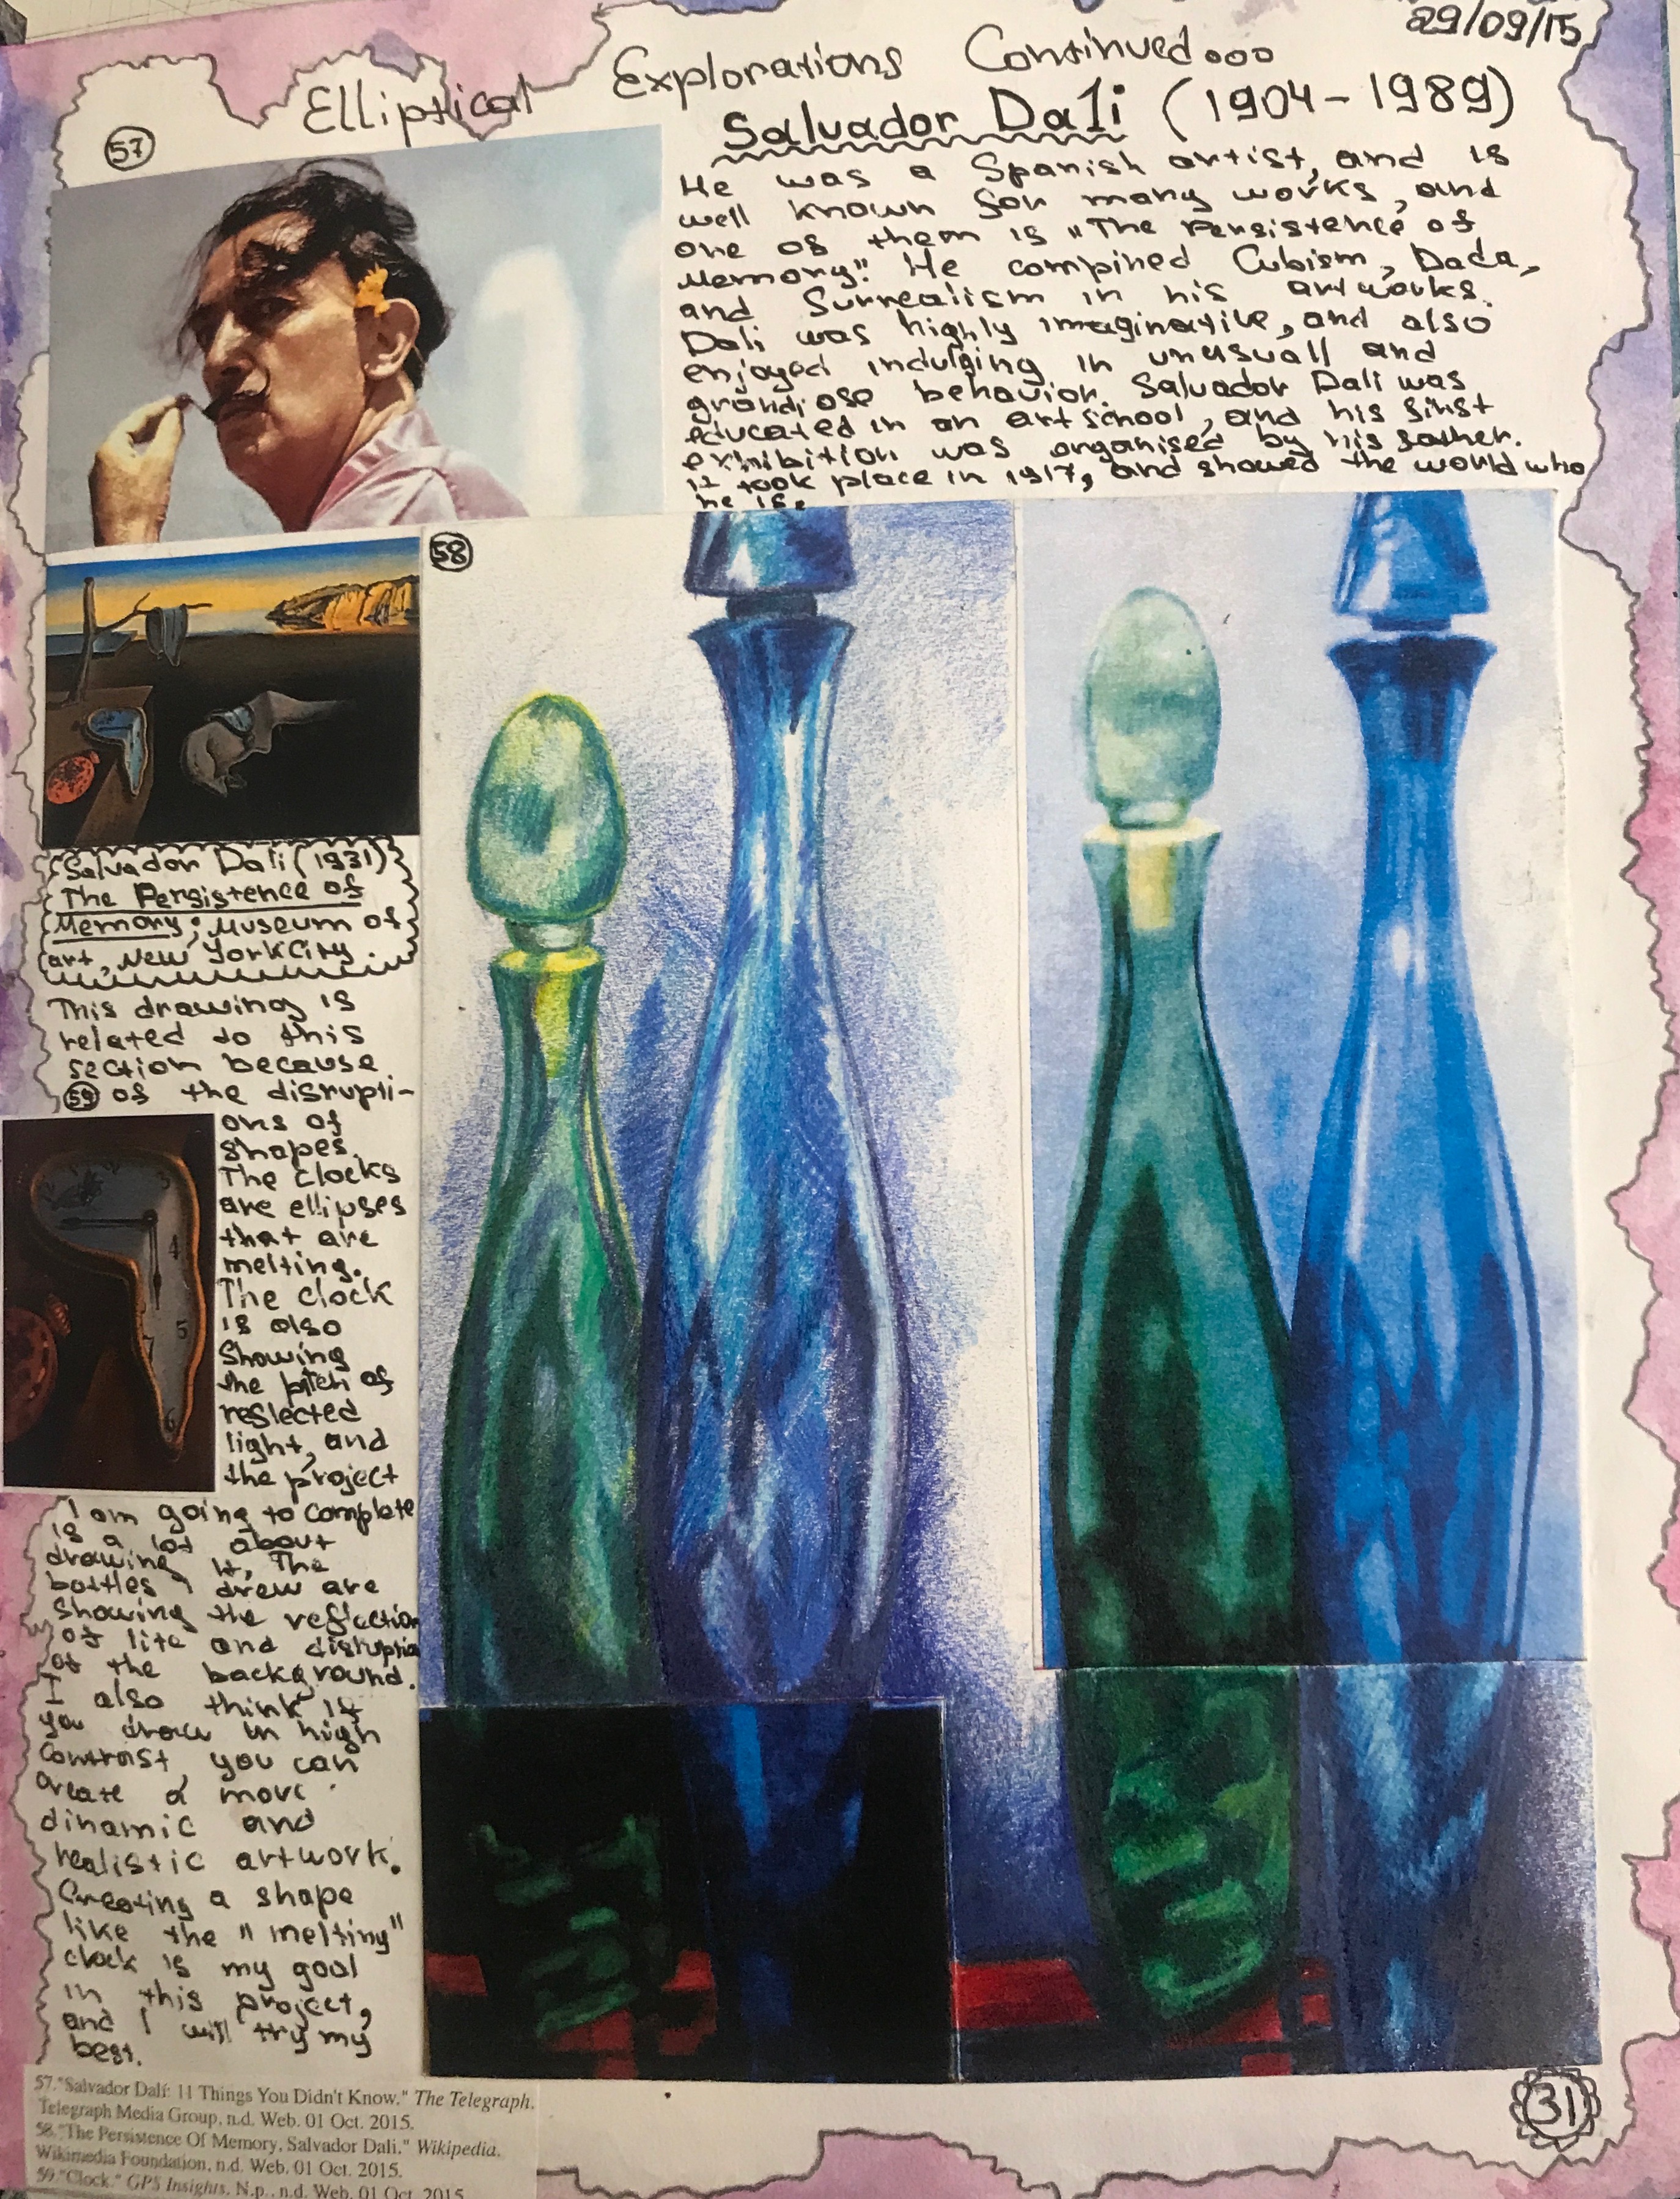 29/09/15
Elliptical Explorations Continued...
57
Salvador Dali (1904-1989)
He was a Spanish artist, and is
well known for many works, and
one of them is "The Persistence of
Memory". He compined Cubism, Dada,
and Surrealism in his artworks.
Dali was highly imaginative, and also
enjoyed indulging in unusuall and
grandiose behavior. Salvador Dali was
educated in an art school, and his first
exhibition was organised by his father.
it took place in 1917, and showed the world who
he is.
58
Salvador Dali (1931)
The Persistence of
Memory; Museum of
art, New York City.
This drawing is
related do this
section because
59 of the disrupti-
ons of
shapes.
The clocks
are ellipses
that are
melting.
The clock
is also
showing
the pitch of
reflected
light, and
the project
I am going to complete
is a lot about
drawing it, The
bottles I drew are
showing the reflection
of lite and disruptio
of the background.
I also think if
you draw in high
Contrast, you can
create a more
dinamic and
realistic artwork.
Creating a shape
like the "melting"
clock is my goal
in this project,
and I will try my
best.
57."Salvador Dalí: 11 Things You Didn't Know." The Telegraph.
Telegraph Media Group, n.d. Web. 01 Oct. 2015.
58."The Persistence Of Memory, Salvador Dali." Wikipedia.
Wikimedia Foundation, n.d. Web. 01 Oct. 2015.
59."Clock." GPS Insights. N.p., n.d. Web. 01 Oct. 2015
31
3
4
5
6